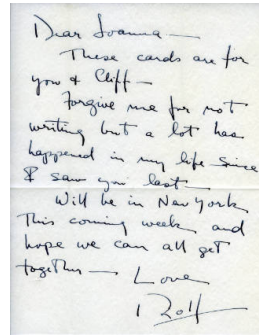 Dear Joanna—
These cards are for
you & Cliff—
Forgive me for not
writing but a lot has
happened in my life since
I saw you last—
Will be in New York
this coming week and
hope we can all get
together— Love
Rolf